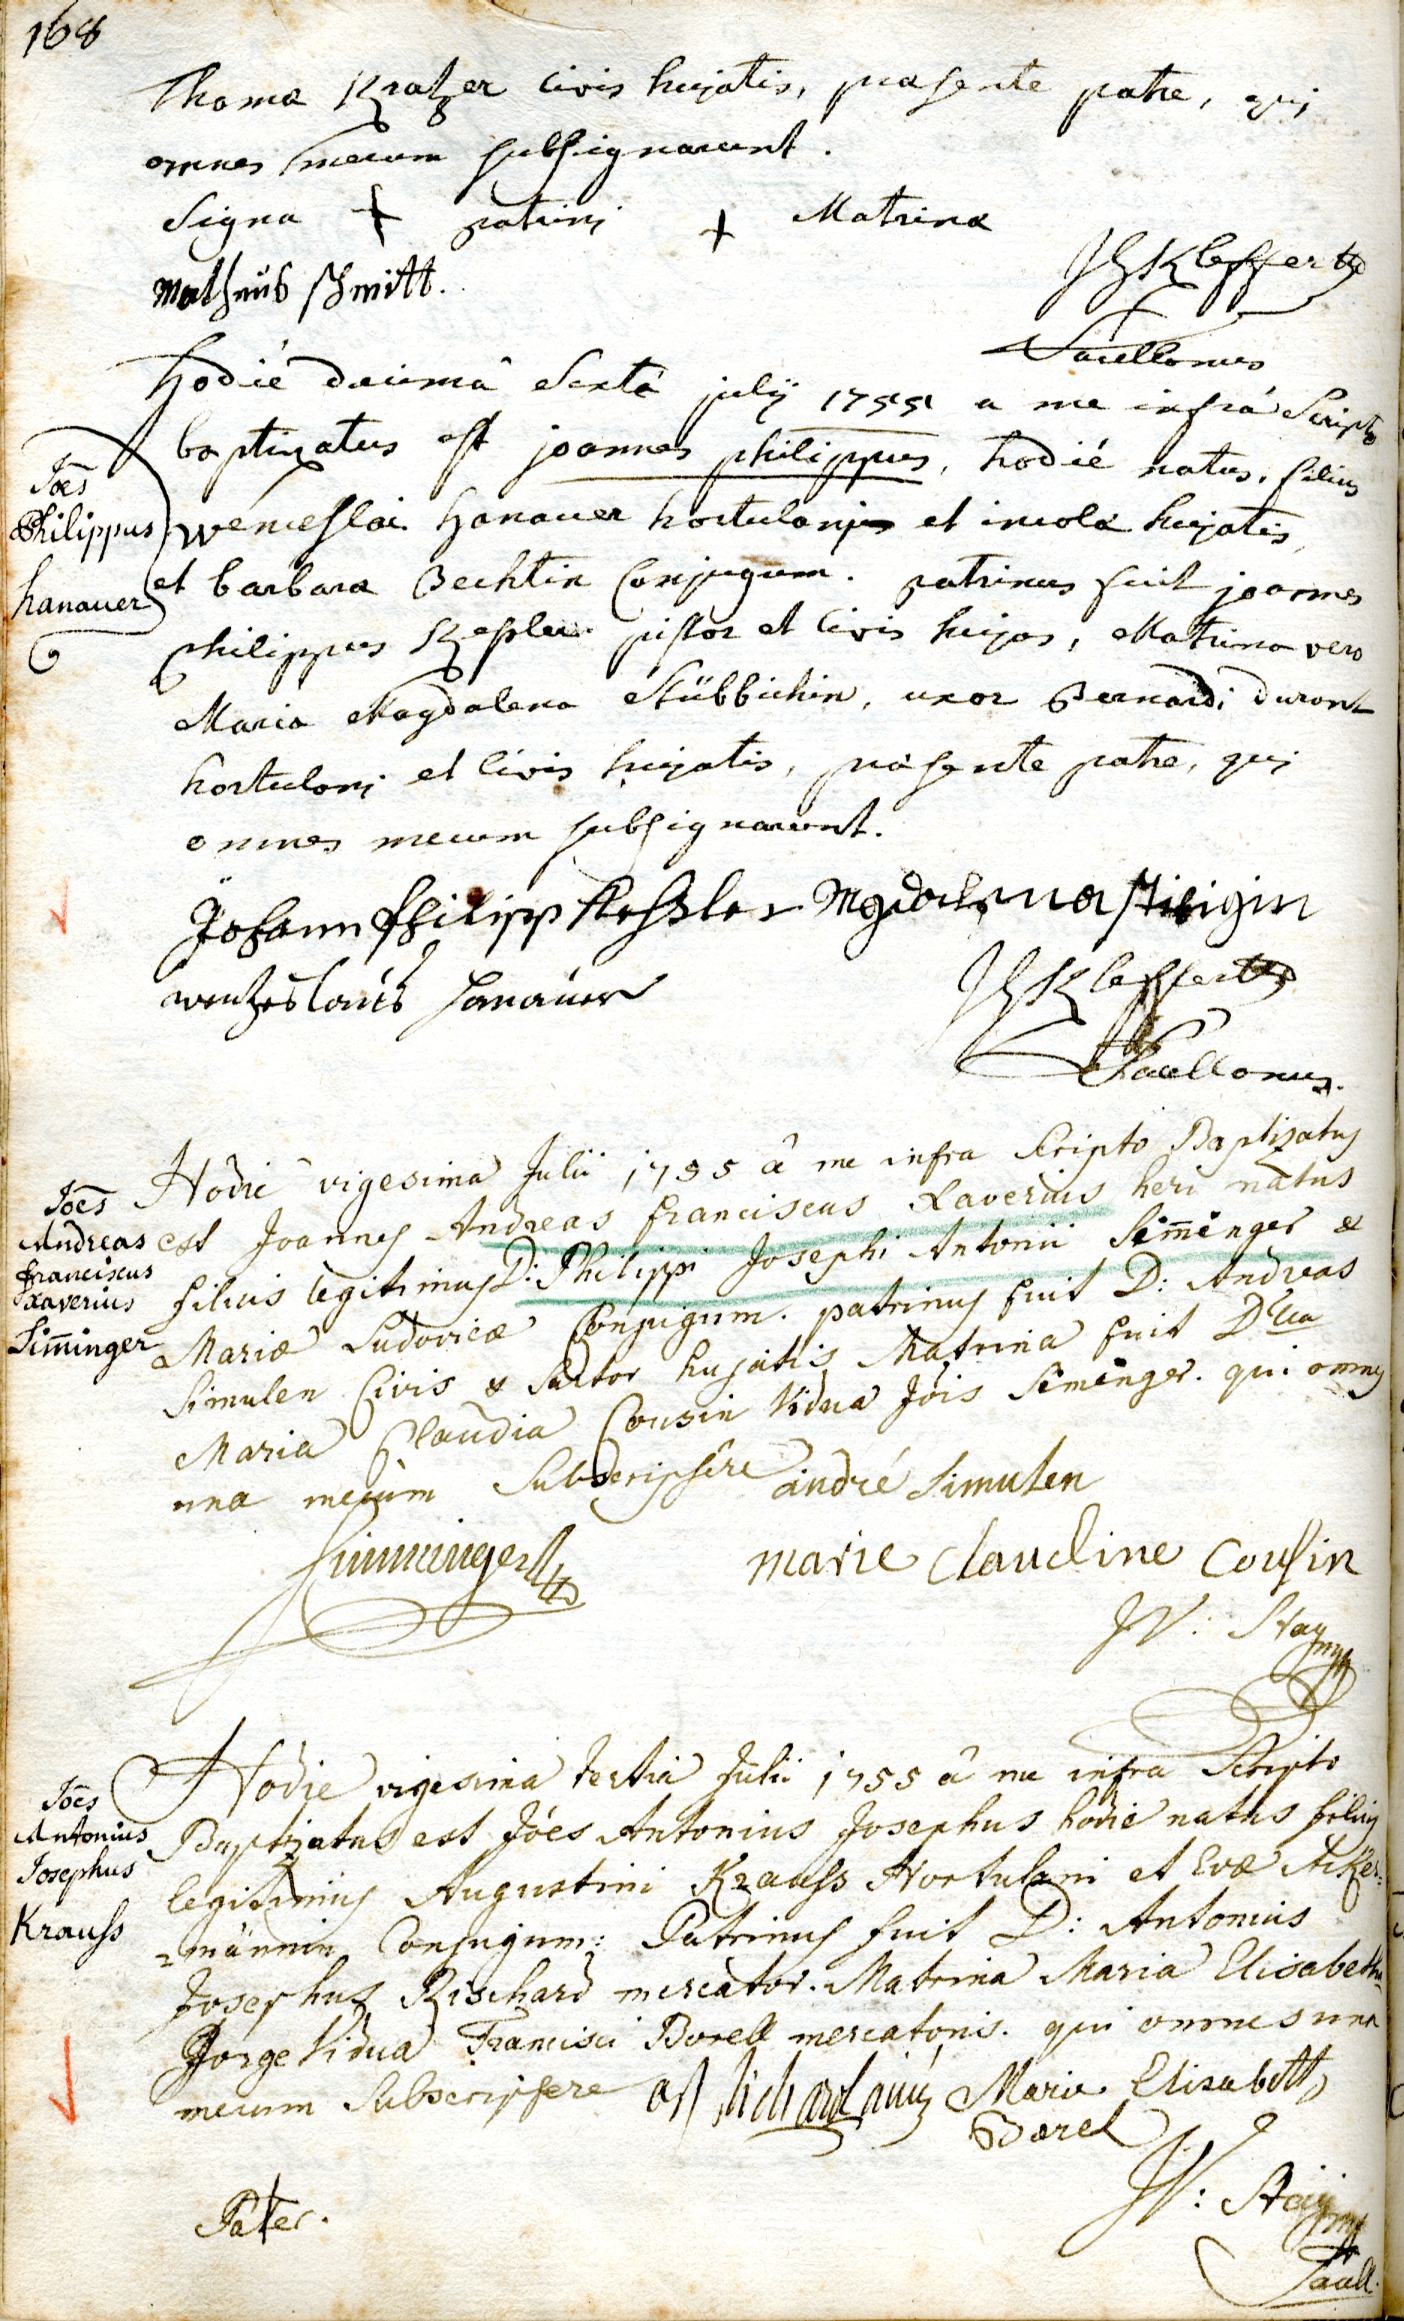 168
Thomæ Kratzer Civis hujatis, præsente patre, qui
omnes mecum subsignarunt.
Signa + patrini + Matrinæ
Mathæüs Schmitt.
Kleffert
Sacellanus
hodié decimâ Sextâ julÿ 1755 a me infrá Scripto
baptizatus est joannes philippus, hodié natus, filius
Joes̄
Philippus
hanauer
wenceslai hanauer hortulani et incolæ hujatis,
et barbaræ Bechtin Conjugum. patrinus fuit joannes
philippus Kesler pistor et Civis hujas, Matrina vero
Maria Magdalena Stübbichin, uxor Bernardi durant
hortulani et Civis hujatis, præsente patre, qui
omnes mecum subsignarunt.
Johann Philipp Kesßler Magdalena stibigin
wentzeslaus hanauer
Kleffert
Sacellanus.
Hodie vigesima Julii 1755 â me infra Scripto Baptizatus
Joēs
Andreas
franciscus
xaverius
Sim̄inger
est Joannes Andreas franciscus Xaverius heri natus
filius legitimus D: Philippi Josephi Antonii Sim̄inger &
Mariæ Ludovicæ Conjugum. patrinus fuit D: Andreas
Simulen Civis & Sartor hujatis Matrina fuit
Maria Claudia Cousin Vidua Jois Siminger. qui omnes
una mecùm Subscripsêre andré Simulen
Simminger
marie Claudine Cousin
Hodie vigesima tertia Julii 1755 â me infra Scripto
Joēs
Antonius
Josephus
Krauss
Baptizatus est Jóes Antonius Josephus hodie natus filius
legitimus Augustini Krauss Hortulani et Evæ Acker=
=männin Conjugum: Patrinus fuit D: Antonius
Josephus Rischard mercator. Matrina Maria Elisabetha
Jorge Vidua Francisci Borell mercatoris. qui omnes una
mecum Subscripsere Maria Elisabetth
Borel
Pater.
Sacell.